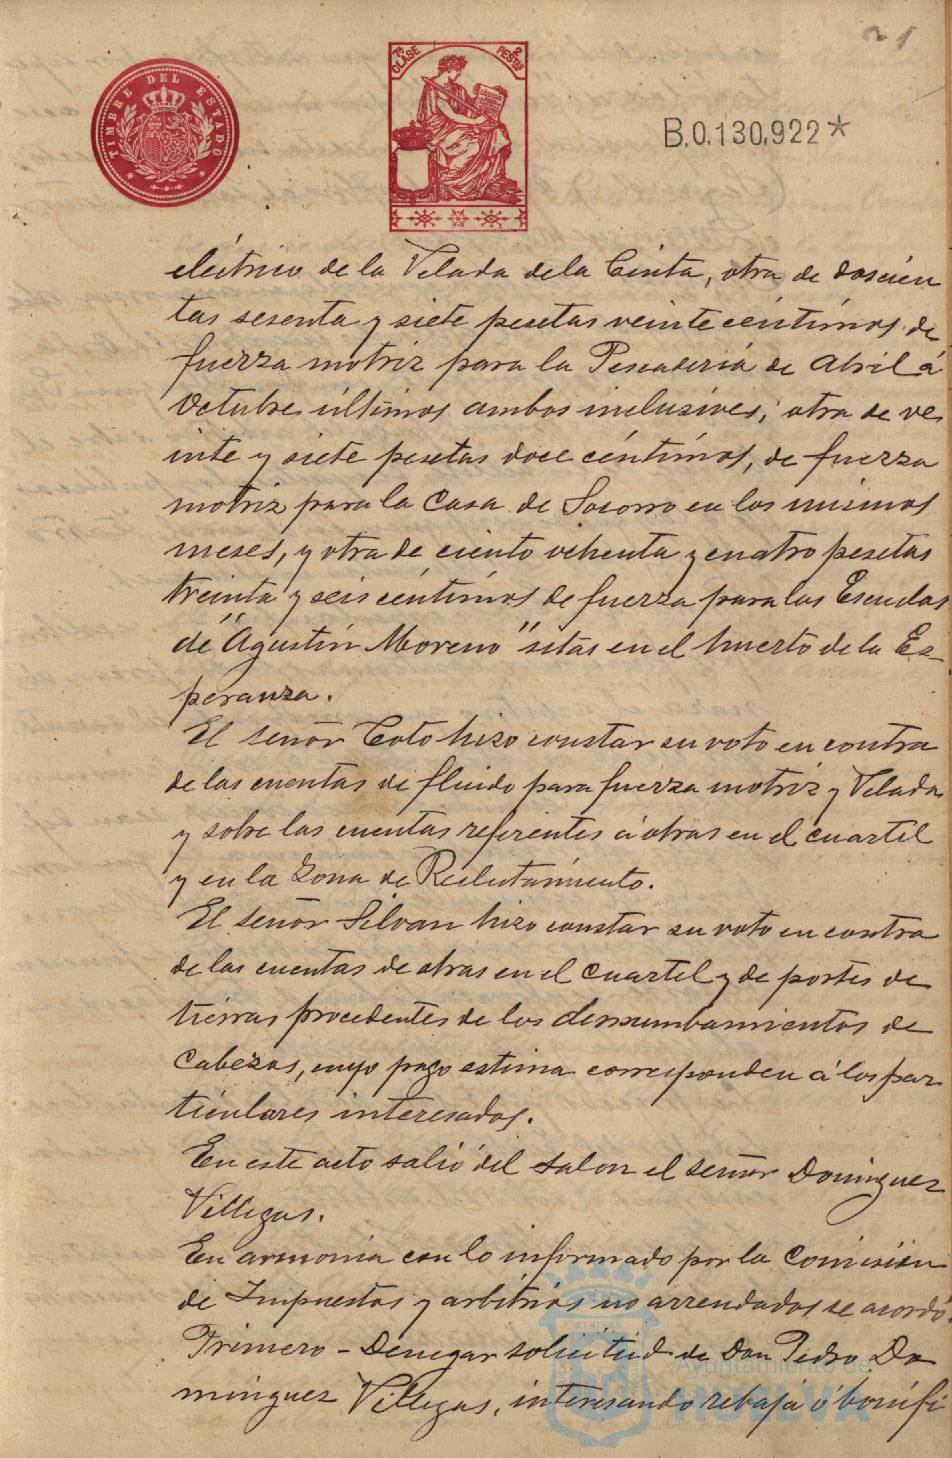 21
TIMBRE DEL ESTADO
7ª CLASE 2 PESTAS
B.0.130,922*
eléctrico de la Velada de la Cinta, otra de doscien
tas sesenta y siete pesetas veinte céntimos de
fuerza motriz para la Pescadería de Abril á
Octubre últimos ambos inclusives; otra de ve
inte y siete pesetas doce céntimos, de fuerza
motriz para la Casa de Socorro en los mismos
meses, y otra de ciento ochenta y cuatro pesetas
treinta y seis céntimos de fuerza para las Escuelas
de "Agustín Moreno" sitas en el huerto de la Es
peranza.
El señor Coto hizo constar su voto en contra
de las cuentas de fluido para fuerza motriz y Velada
y sobre las cuentas referentes á obras en el cuartel
y en la Zona de Reclutamiento.
El señor Silvan hizo constar su voto en contra
de las cuentas de obras en el cuartel y de portes de
tierras procedentes de los derrumbamientos de
Cabezos, cuyo pago estima corresponden á los par
ticulares interesados.
En este acto salió del salon el señor Dominguez
Villegas.
En armonia con lo informado por la Comisión
de Impuestos y arbitrios no arrendados se acordó:
Primero - Denegar solicitud de Don Pedro Do
minguez Villegas, interesando rebaja ó bonifi
Ayuntamiento de
HUELVA